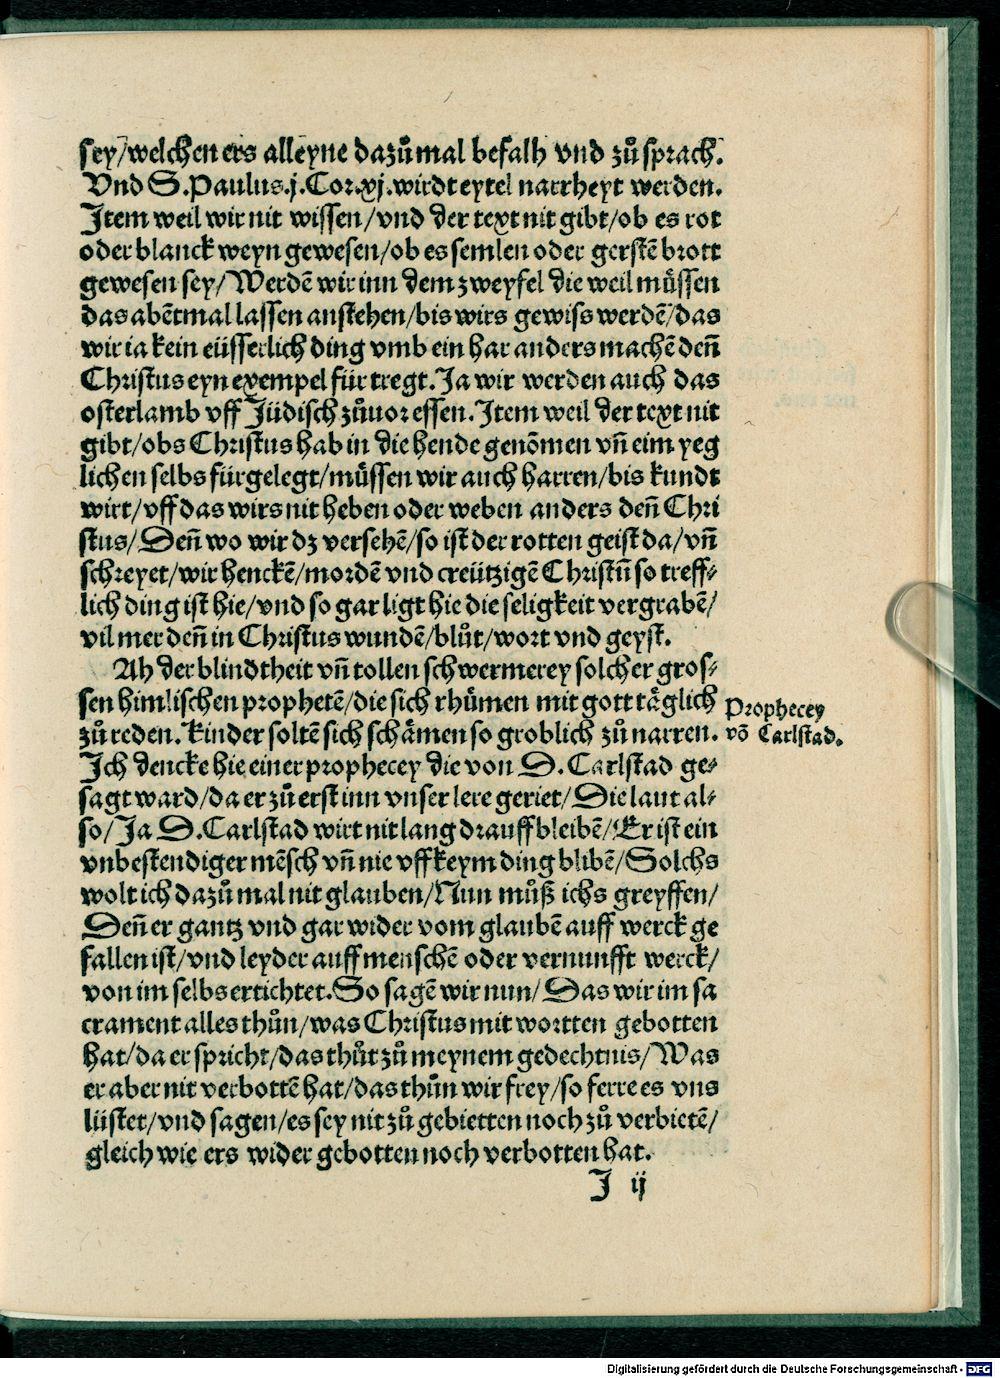 sey/welchen ers alleyne dazůmal befalh vnd zů sprach.
Vnd S. Paulus .j. Cor. xj. wirdt eytel narrheyt werden.
Item weil wir nit wissen/vnd der text nit gibt/ob es rot
oder blanck weyn gewesen/ob es semlen oder gerstē brott
gewesen sey/Werdē wir inn dem zweyfel die weil müssen
das abētmal lassen anstehen/bis wirs gewiss werdē/das
wir ia kein eüsserlich ding vmb ein har anders machē deñ
Christus eyn exempel für tregt. Ja wir werden auch das
osterlamb vff Jüdisch zůuor essen. Item weil der text nit
gibt/obs Christus hab in die hende genōmen vñ eim yeg
lichen selbs fürgelegt/müssen wir auch harren/bis kundt
wirt/vff das wirs nit heben oder weben anders deñ Chri
stus/Deñ wo wir dz versehē/so ist der rotten geist da/vñ
schreyet/wir henckē/mordē vnd creützigē Christū so treff-
lich ding ist hie/vnd so gar ligt hie die seligkeit vergrabē/
vil mer deñ in Christus wundē/blůt/wort vnd geyst.
Ah der blindtheit vñ tollen schwermerey solcher gros-
sen himlischen prophetē/die sich rhümen mit gott täglich
zů reden. Kinder soltē sich schämen so groblich zů narren.
Prophecey
vō Carlstad.
Ich dencke hie einer prophecey die von D. Carlstad ge-
sagt ward/da er zů erst inn vnser lere geriet/Die laut al-
so/Ja D. Carlstad wirt nit lang drauff bleibē/Er ist ein
vnbestendiger mēsch vñ nie vff keym ding blibē/Solchs
wolt ich dazůmal nit glauben/Nun můß ichs greyffen/
Deñ er gantz vnd gar wider vom glaubē auff werck ge
fallen ist/vnd leyder auff menschē oder vernunfft werck/
von im selbs ertichtet. So sagē wir nun/Das wir im sa
crament alles thůn/was Christus mit wortten gebotten
hat/da er spricht/das thůt zů meynem gedechtnis/Was
er aber nit verbottē hat/das thůn wir frey/so ferre es vns
lüstet/vnd sagen/es sey nit zů gebietten noch zů verbietē/
gleich wie ers wider gebotten noch verbotten hat.
J ij
Digitalisierung gefördert durch die Deutsche Forschungsgemeinschaft - DFG